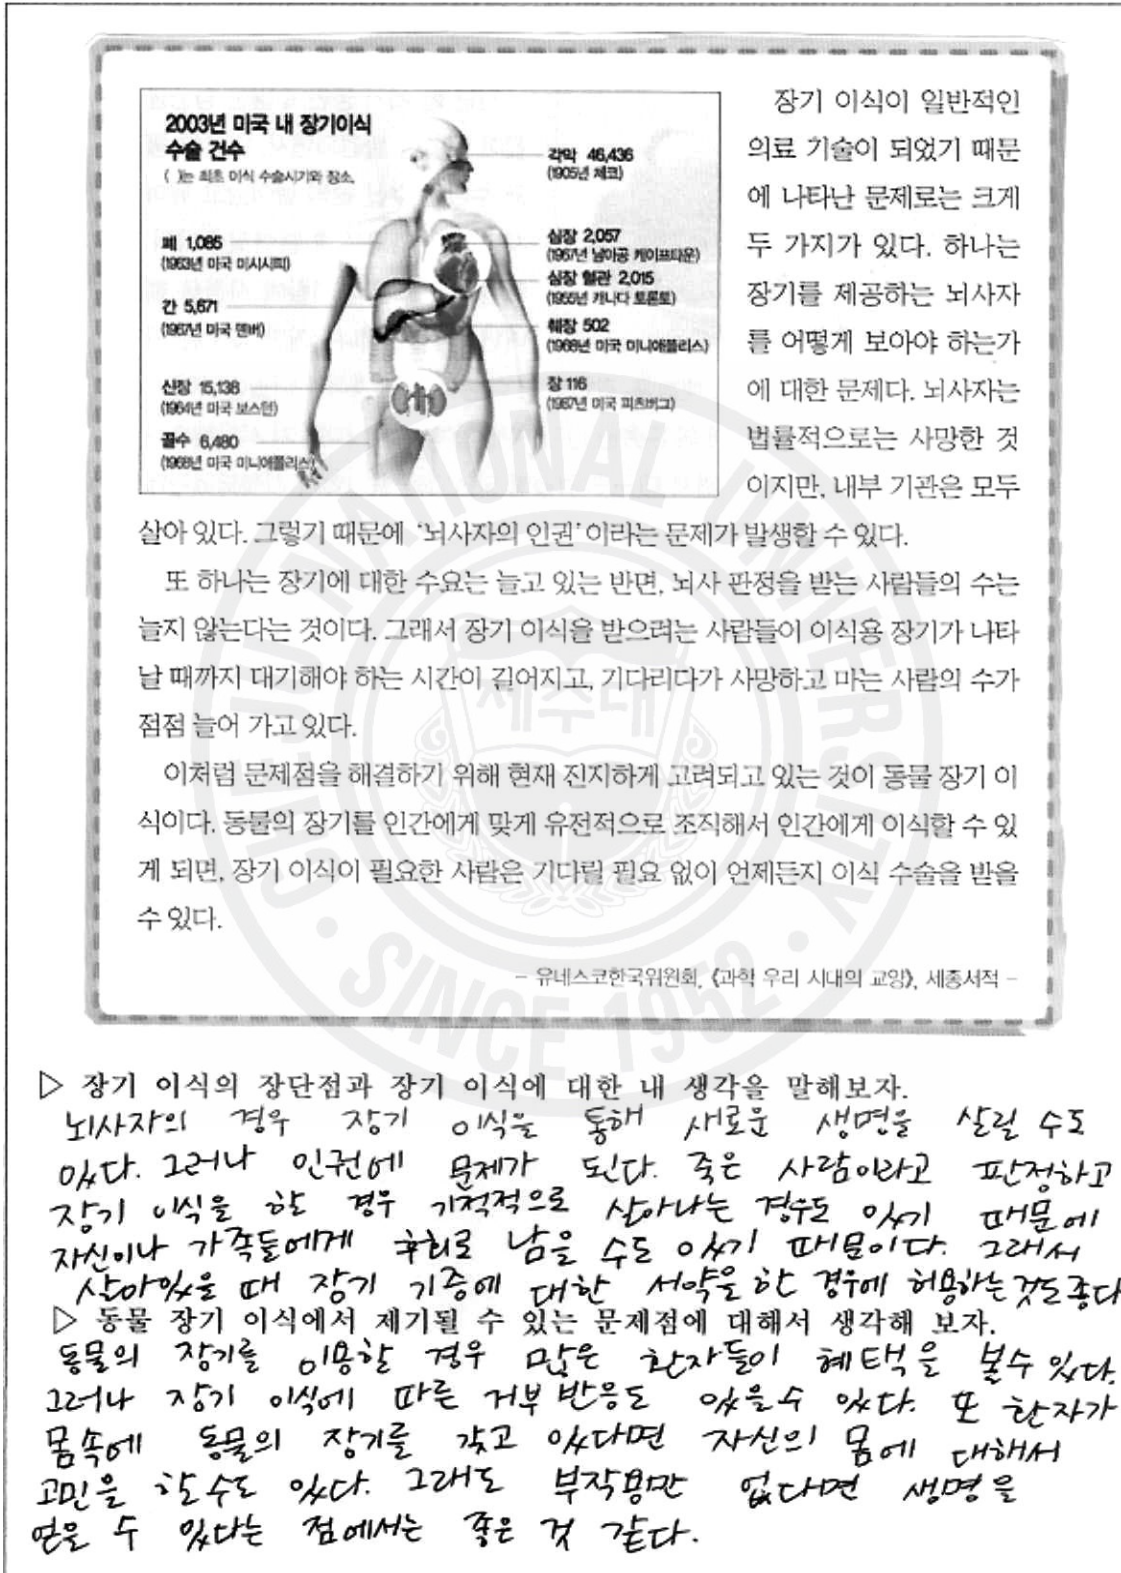 2003년 미국 내 장기이식
수술 건수
( )는 최초 이식 수술시기와 장소.
각막 46,436
(1905년 체코)
폐 1,085
(1963년 미국 미시시피)
심장 2,057
(1967년 남아공 케이프타운)
심장 혈관 2,015
(1955년 캐나다 토론토)
간 5,671
(1967년 미국 덴버)
췌장 502
(1968년 미국 미니애폴리스)
신장 15,138
(1954년 미국 보스턴)
장 116
(1987년 미국 피츠버그)
골수 6,480
(1968년 미국 미니애폴리스)
장기 이식이 일반적인
의료 기술이 되었기 때문
에 나타난 문제로는 크게
두 가지가 있다. 하나는
장기를 제공하는 뇌사자
를 어떻게 보아야 하는가
에 대한 문제다. 뇌사자는
법률적으로는 사망한 것
이지만, 내부 기관은 모두
살아 있다. 그렇기 때문에 '뇌사자의 인권'이라는 문제가 발생할 수 있다.
또 하나는 장기에 대한 수요는 늘고 있는 반면, 뇌사 판정을 받는 사람들의 수는
늘지 않는다는 것이다. 그래서 장기 이식을 받으려는 사람들이 이식용 장기가 나타
날 때까지 대기해야 하는 시간이 길어지고, 기다리다가 사망하고 마는 사람의 수가
점점 늘어 가고 있다.
이처럼 문제점을 해결하기 위해 현재 진지하게 고려되고 있는 것이 동물 장기 이
식이다. 동물의 장기를 인간에게 맞게 유전적으로 조직해서 인간에게 이식할 수 있
게 되면, 장기 이식이 필요한 사람은 기다릴 필요 없이 언제든지 이식 수술을 받을
수 있다.
- 유네스코한국위원회, 《과학 우리 시대의 교양》, 세종서적 -
▷ 장기 이식의 장단점과 장기 이식에 대한 내 생각을 말해보자.
뇌사자의 경우 장기 이식을 통해 새로운 생명을 살릴 수도
있다. 그러나 인권에 문제가 된다. 죽은 사람이라고 판정하고
장기 이식을 할 경우 기적적으로 살아나는 경우도 있기 때문에
자신이나 가족들에게 후회로 남을 수도 있기 때문이다. 그래서
살아있을 때 장기 기증에 대한 서약을 한 경우에 허용하는것도좋다
▷ 동물 장기 이식에서 제기될 수 있는 문제점에 대해서 생각해 보자.
동물의 장기를 이용할 경우 많은 환자들이 혜택을 볼수 있다.
그러나 장기 이식에 따른 거부 반응도 있을수 있다. 또 환자가
몸속에 동물의 장기를 갖고 있다면 자신의 몸에 대해서
고민을 할수도 있다. 그래도 부작용만 없다면 생명을
얻을 수 있다는 점에서는 좋은 것 같다.
JEJU NATIONAL UNIVERSITY
제주대
SINCE 1952